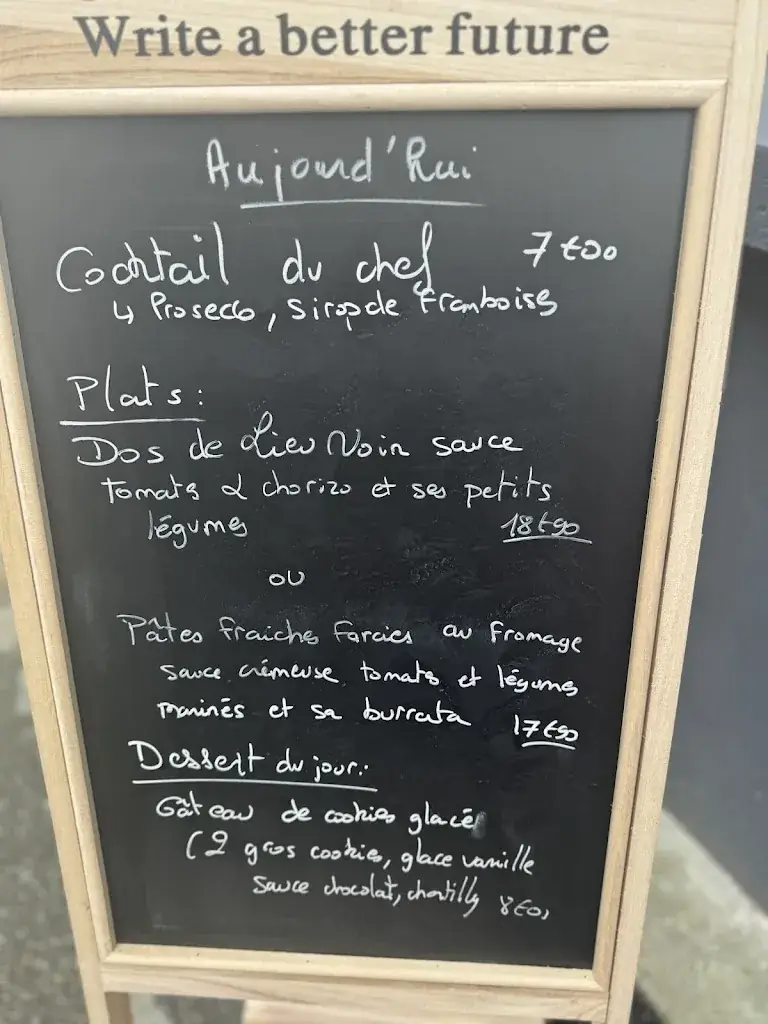 Write a better future
Aujourd'hui
Cocktail du chef 7€00
↳ Prosecco, Sirop de Framboise
Plats:
Dos de Lieu Noir sauce
tomate & chorizo et ses petits
légumes 18€90
ou
Pâtes fraiches farcies au fromage
sauce crémeuse tomate et légumes
marinés et sa burrata 17€90
Dessert du jour:
Gâteau de cookies glacé
(2 gros cookies, glace vanille
sauce chocolat, chantilly 8€0)